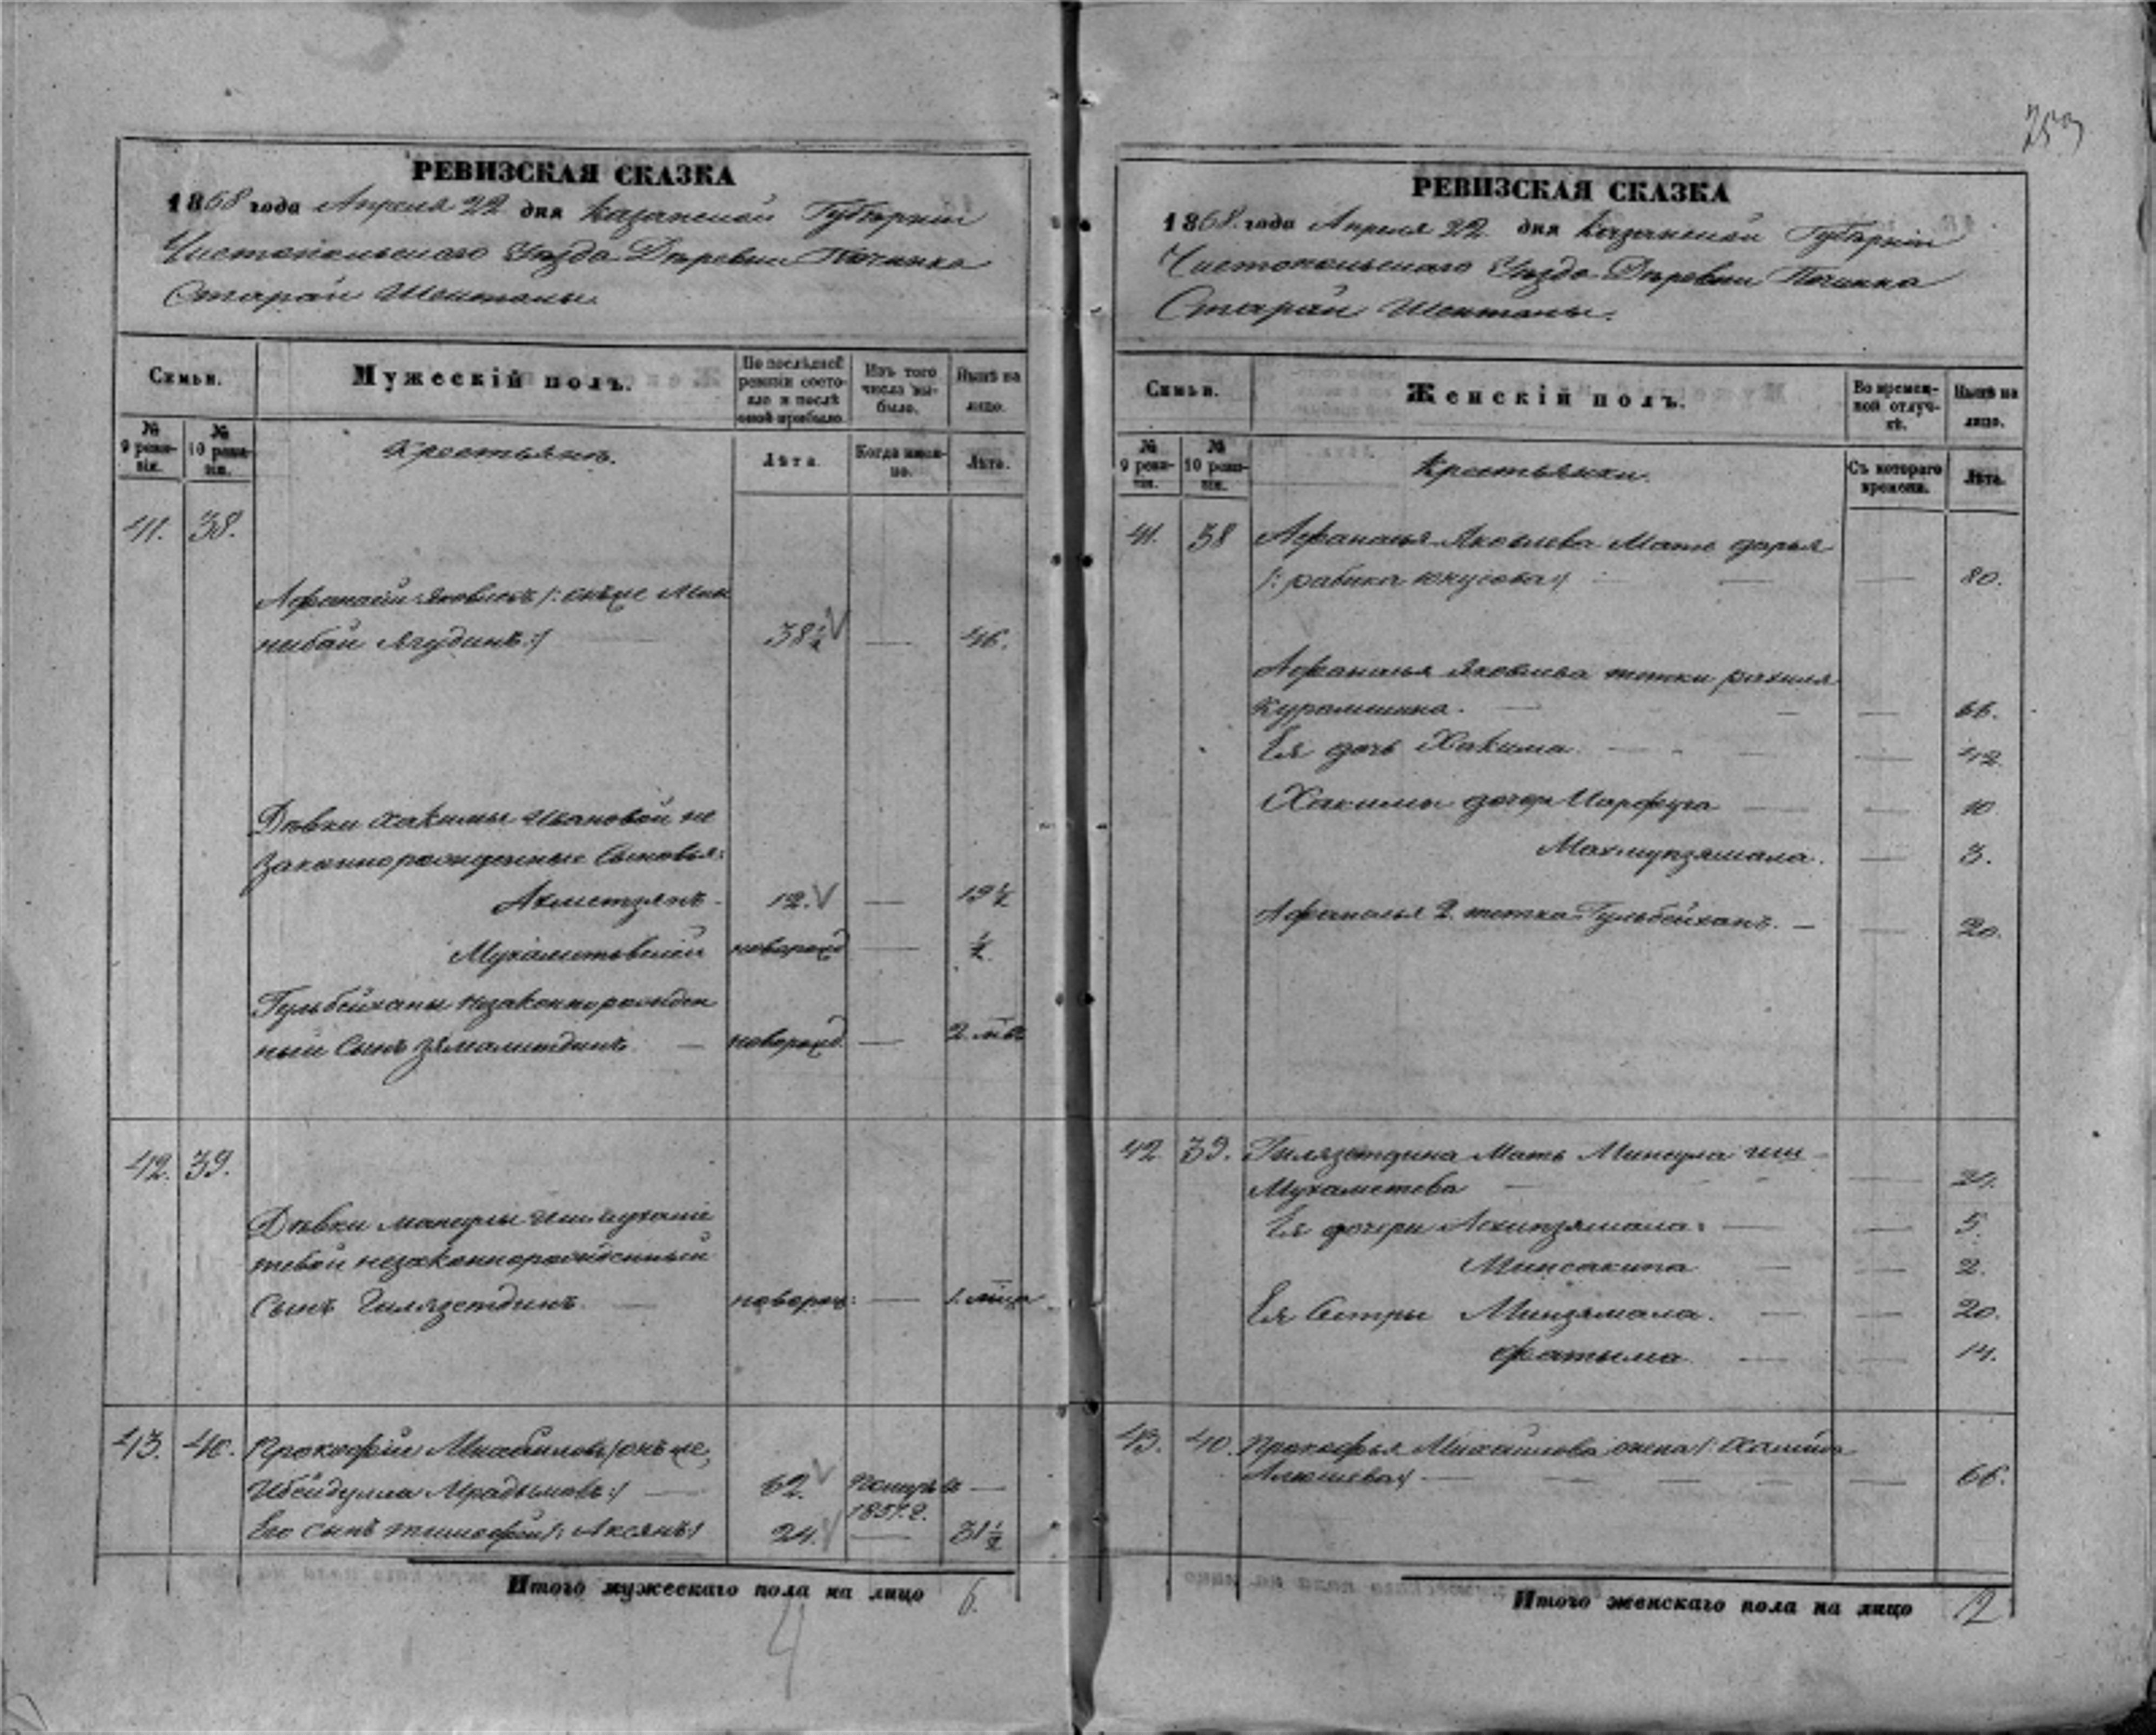 253
РЕВИЗСКАЯ СКАЗКА
1858 года Апреля 22 дня Казанской Губерніи
Чистопольскаго Уѣзда Деревни Починка
Старой Шентолы.
Семьи.
Мужескій полъ.
По послѣдней ревизіи состояло и послѣ оной прибыло
Изъ того числа выбыло.
Нынѣ на лицо.
№ 9 ревизіи.
№ 10 ревизіи.
Крестьянъ.
Лѣта.
Когда именно.
Лѣта.
41. 38.
Афанасій Яковлевъ /: онъ же Мин
нибай Ягудинъ :/ — 38½ — 46.
Дѣвки Хакимы Ивановой не
законнорожденные Сыновья:
Ахметзянъ - 12. — 19½
новорожд — ½
Гульбейханы незаконнорожден
ный Сынъ Зямалитдинъ — новорожд. — 2 м-ца
42. 39.
Дѣвки
тевой незаконнорожденный
Сынъ Гилязетдинъ — новорож: — 1. м-ца
43. 40. Прокофій Михайловъ /: онъ же,
Ибейдулла :/ — 62. Померъ в —
1851. г.
Его сынъ Тимофей /: Аксянъ / 24. — 31½
Итого мужескаго пола на лицо 6.
4
РЕВИЗСКАЯ СКАЗКА
1858. года Апреля 22 дня Казанской Губерніи
Чистопольскаго Уѣзда Деревни Починка
Старой Шентолы.
Семьи.
Женскій полъ.
Во временной отлучкѣ.
Нынѣ на лицо.
№ 9 ревизіи.
№ 10 ревизіи.
Крестьянки.
Съ котораго времени.
Лѣта.
41. 38 Афанасья Яковлева Мать Дарья
/: рабика юнусова / — — 80.
Афанасья Яковлева тетки рахиля
Курамшина. — — — 66.
Ея дочь Хакима — — 42.
Хакимы дочери Марфуга — — 10.
— 3.
Афанасья 2. тетка Гульбейханъ. — — 20.
42. 39. Гилязетдина Мать
Мухаметева — — 29.
Ея дочери — — 5.
Минсакипа — — 2.
Ея Сестры Минзямала. — — 20.
Фатыма — — 14.
43. 40. Прокофья Михайлова жена /:
— — — — 66.
Итого женскаго пола на лицо 12